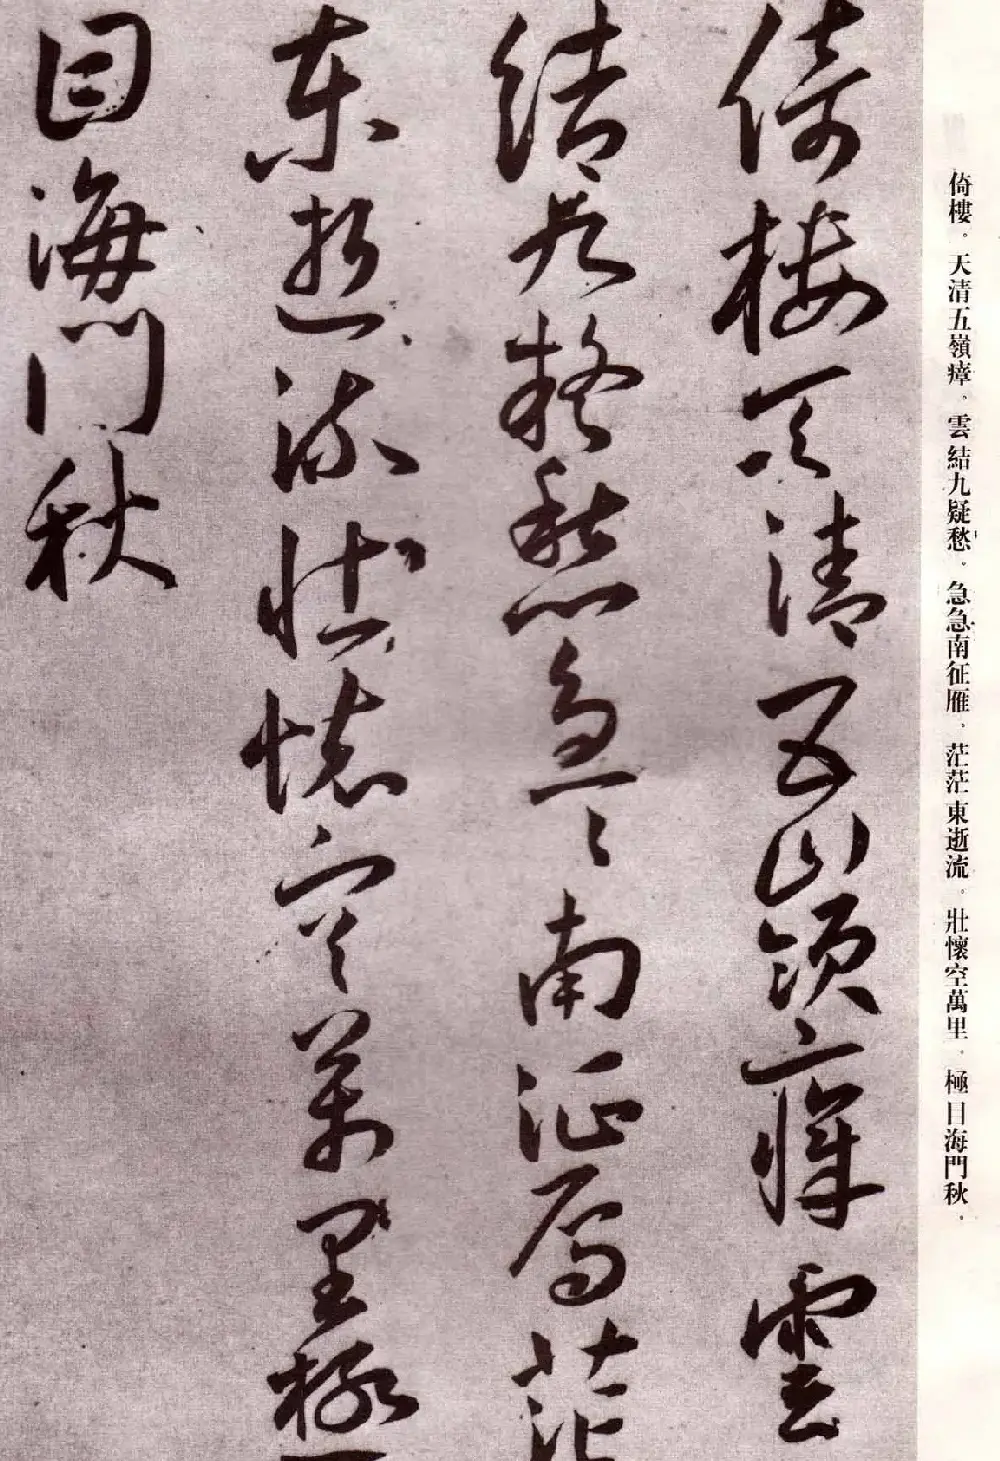 倚樓。天清五嶺瘴。雲結九疑愁。急急南征雁。茫茫東逝流。壯懷空萬里。極目海門秋。
倚樓天清五嶺瘴雲
結九疑愁急〻南征雁茫茫
東逝流壯懷空萬里極
目海門秋